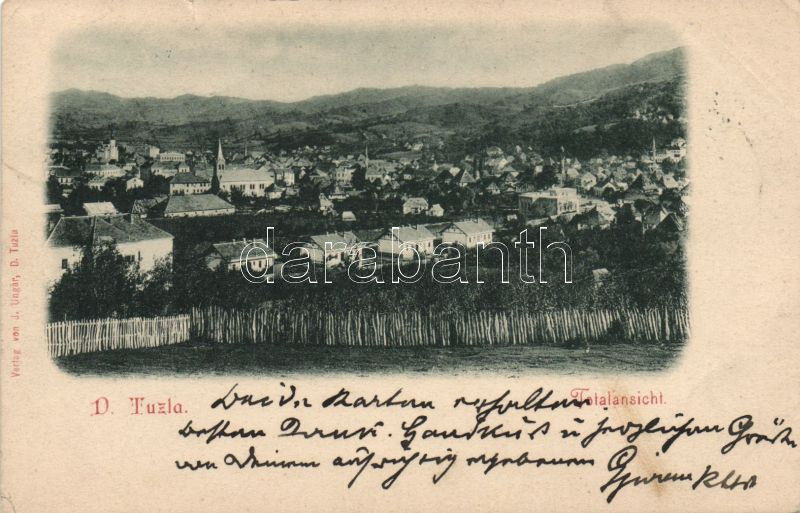 Verlag von J. Ungár, D. Tuzla
darabanth
D. Tuzla.
Totalansicht.
Beide Karten erhalten
besten Dank. Handkuß u herzlichen Grüße
von Deinem aufrichtig ergebenen